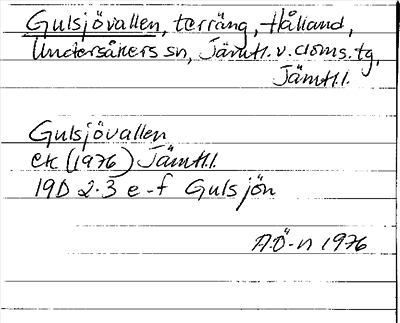 Gulsjövallen, terräng, Hålland,
Undersåkers sn, Jämtl.v.doms.tg,
Jämtl.l.
Gulsjövallen
ek (1976) Jämtl.l.
19D 2-3 e-f Gulsjön
A.Ö-n 1976